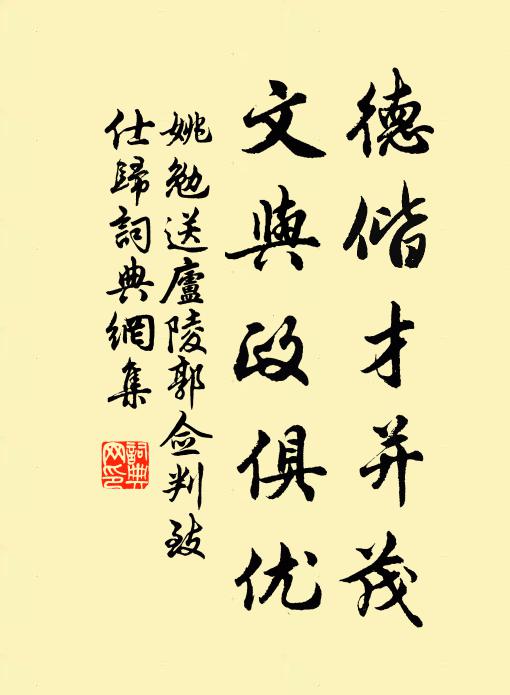 德偕才并茂
文與政俱优
姚勉送廬陵郭佥判致
仕歸詞典網集
詞典
网印